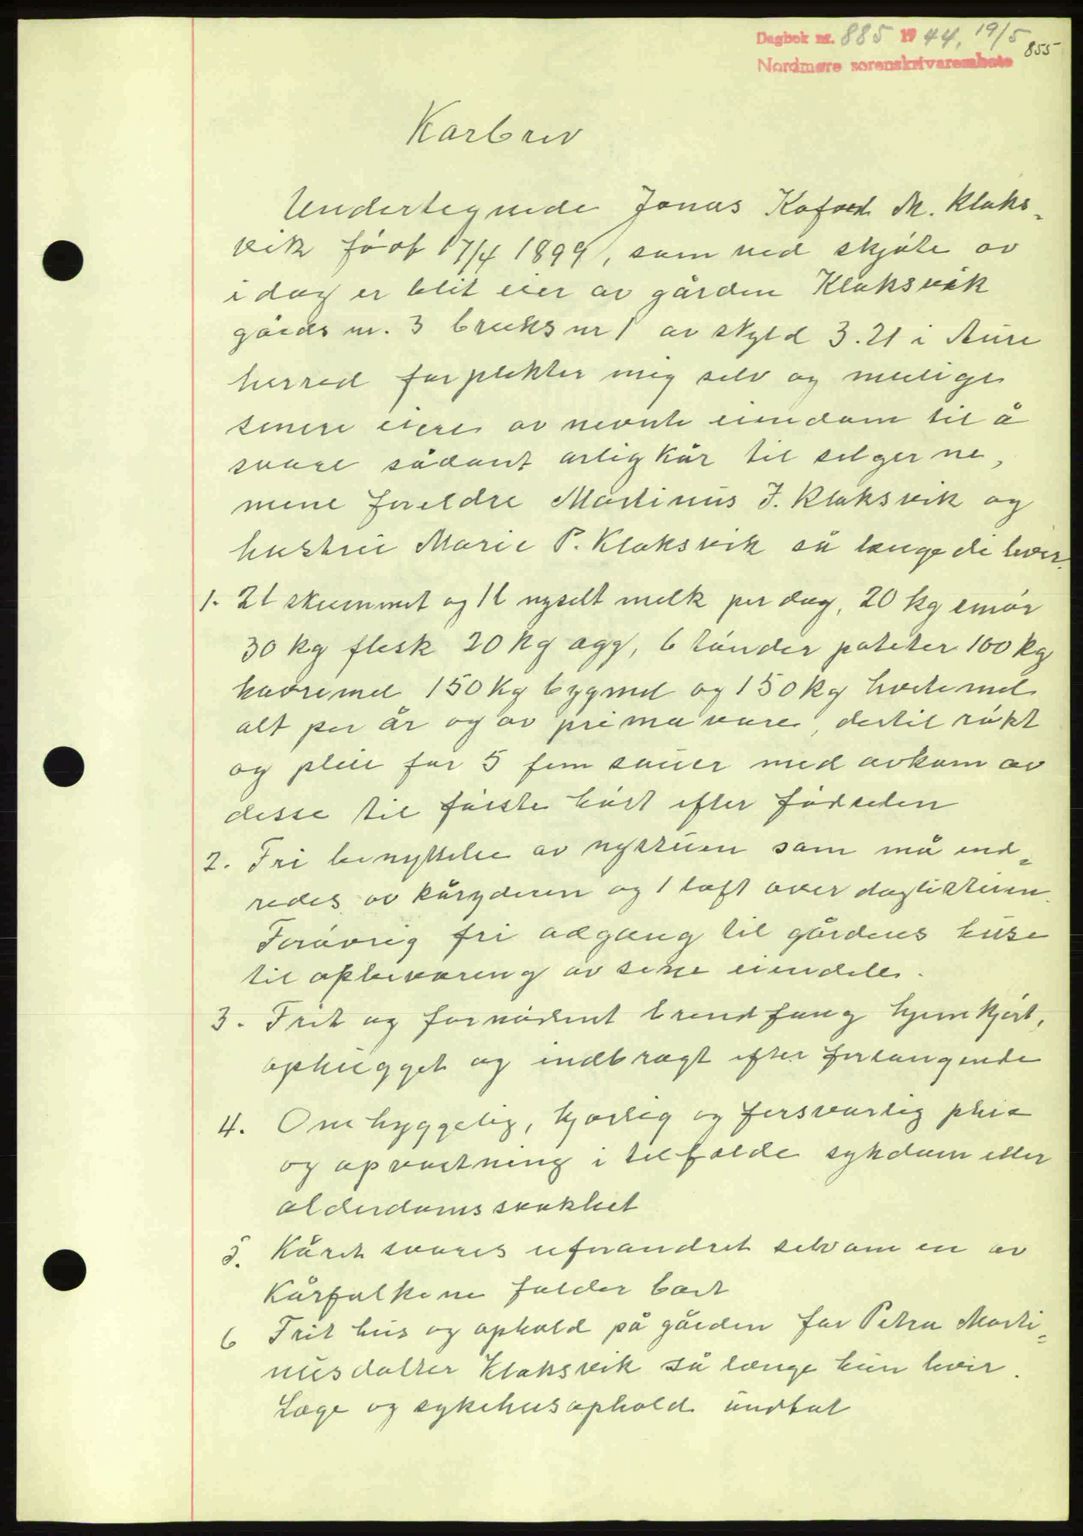 Dagbok nr. 885 1944, 19/5
855
Nordmøre sorenskrivarembete
Karbrev
Undertegnede Jonas Kofoed M. Klaks-
vik født 17/4 1899, som ved skjøte av
idag er blit eier av gården Klaksvik
gårds nr. 3 bruks nr 1 av skyld 3.21 i Aure
herred forplikter mig selv og mulige
senere eiere av nevnte eiendom til å
svare sådant årlig kår til selgerne,
mine foreldre Martinus J. Klaksvik og
hustru Marie P. Klaksvik så længe de lever.
1. 2 l skummet og 1 l nysilt melk per dag, 20 kg smør
30 kg flesk 20 kg egg, 6 tønder poteter 100 kg
havremel 150 kg bygmel og 150 kg hvetemel
alt per år og av prima vare, dertil røkt
og pleie for 5 fem sauer med avkom av
desse til første høst efter fødselen
2. Fri benyttelse av nystuen som må ind-
redes av kåryderen og 1 loft over daglistuen.
Forøvrig fri adgang til gårdens huse
til opbevaring av sine eiendele.
3. Frit og fornødent brendfang hjemkjørt,
ophugget og indbragt efter forlangende
4. Omhyggelig, kjærlig og forsvarlig pleie
og opvartning i tilfælde sykdom eller
alderdomssvakhet
5. Kåret svares uforandret selvom en av
Kårfolkene falder bort
6 Frit hus og ophold på gården for Petra Marti-
nusdatter Klaksvik så længe hun lever.
Læge og sykehusophold undtat